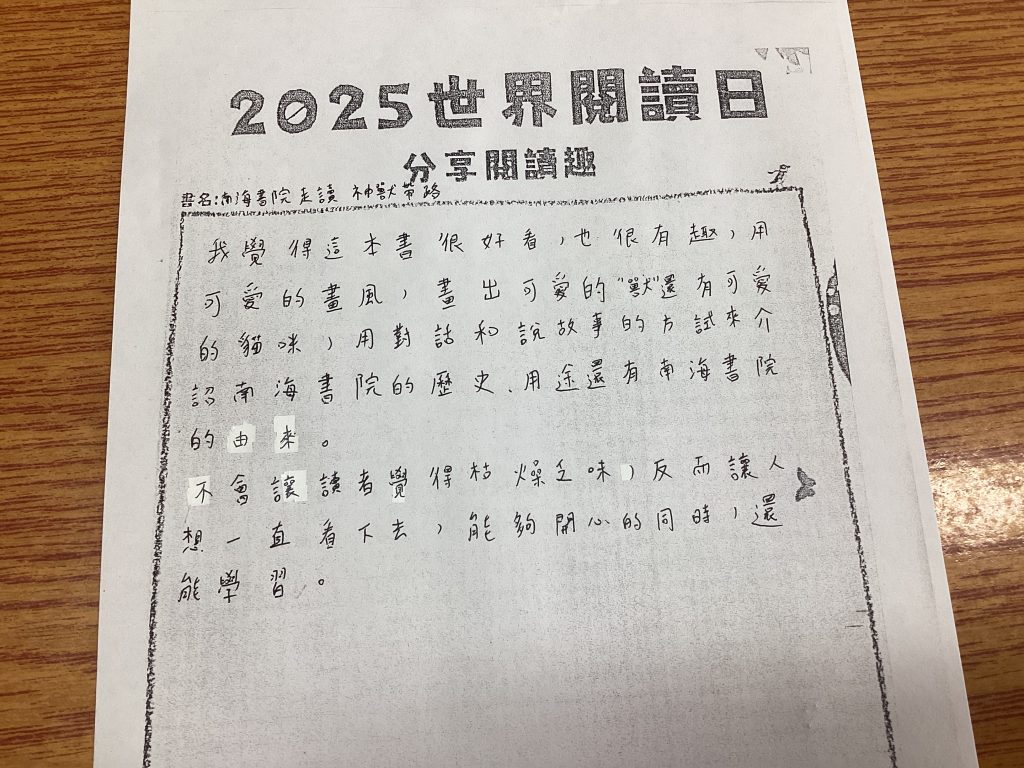 2025世界閱讀日
分享閱讀趣
書名:南海書院走讀 神獸帶路
我覺得這本書很好看，也很有趣，用
可愛的畫風，畫出可愛的"獸"還有可愛
的貓咪，用對話和說故事的方試來介
認南海書院的歷史、用途還有南海書院
的由來。
不會讓讀者覺得枯燥乏味，反而讓人
想一直看下去，能夠開心的同時，還
能學習。